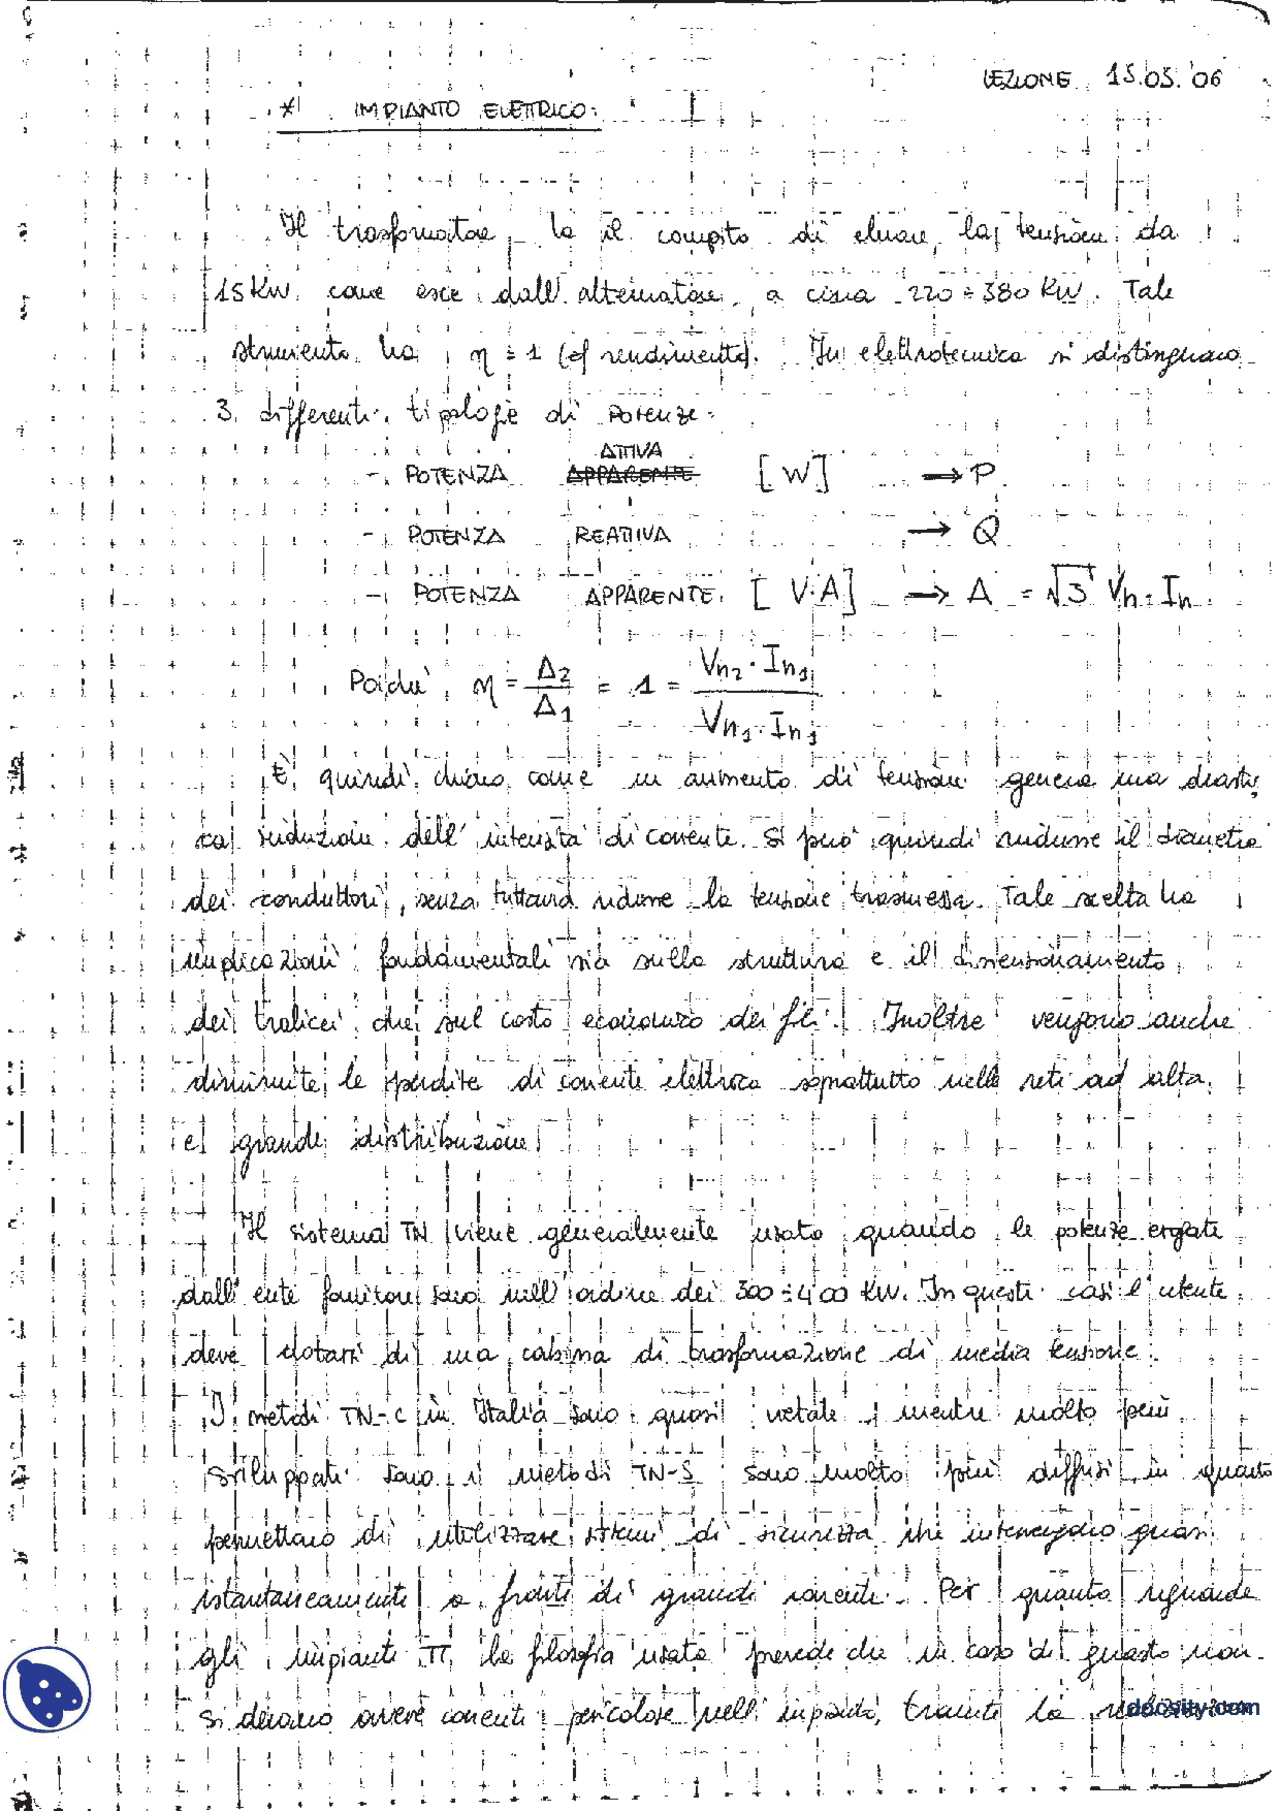 LEZIONE 15.05.'06
* IMPIANTO ELETTRICO:
Il trasformatore ha il compito di elevare la tensione da
15 KW come esce dall'alternatore, a circa 220 ÷ 380 KW. Tale
strumento ha η = 1 (di rendimento). In elettrotecnica si distinguono
3 differenti tipologie di potenze:
- POTENZA ATTIVA [W] → P
- POTENZA REATTIVA → Q
- POTENZA APPARENTE [V·A] → A = √3 Vn · In
Poiché η = A2 / A1 = 1 = Vn2 · In1 / Vn1 · In1
È quindi chiaro come un aumento di tensione genera una drasti
ca riduzione dell'intensità di corrente. Si può quindi ridurre il diametro
dei conduttori, senza tuttavia ridurre la tensione trasmessa. Tale scelta ha
implicazioni fondamentali sia sulla struttura e il dimensionamento
dei tralicci che sul costo economico dei fili. Inoltre vengono anche
diminuite le perdite di corrente elettrica soprattutto nelle reti ad alta
e grande distribuzione.
Il sistema TN viene generalmente usato quando le potenze erogate
dall'ente fornitore sono nell'ordine dei 300 ÷ 400 KW. In questi casi l'utente
deve dotarsi di una cabina di trasformazione di media tensione.
I metodi TN-C in Italia sono quasi vietate, mentre molto più
sviluppati sono i metodi TN-S sono molto più diffusi in quanto
permettono di utilizzare sistemi di sicurezza che intervengono quasi
istantaneamente a fronte di grandi correnti. Per quanto riguarda
gli impianti TT, la filosofia usata prevede che in caso di guasto non
si devono avere correnti pericolose nell'impianto, tramite la
docsity.com